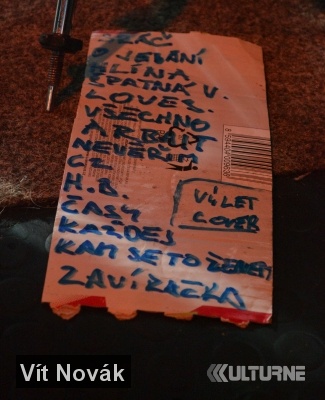 O JEBÁNÍ
ŠPATNÁ V.
LOVEC.
VŠECHNO
ARBAJT
NEVĚŘÍM
CZ
H.B.
ČASY
KAŽDEJ
KAM SE TO
ZAVÍRAČKA
VÝLET
COVER
Vít Novák
KULTURNE